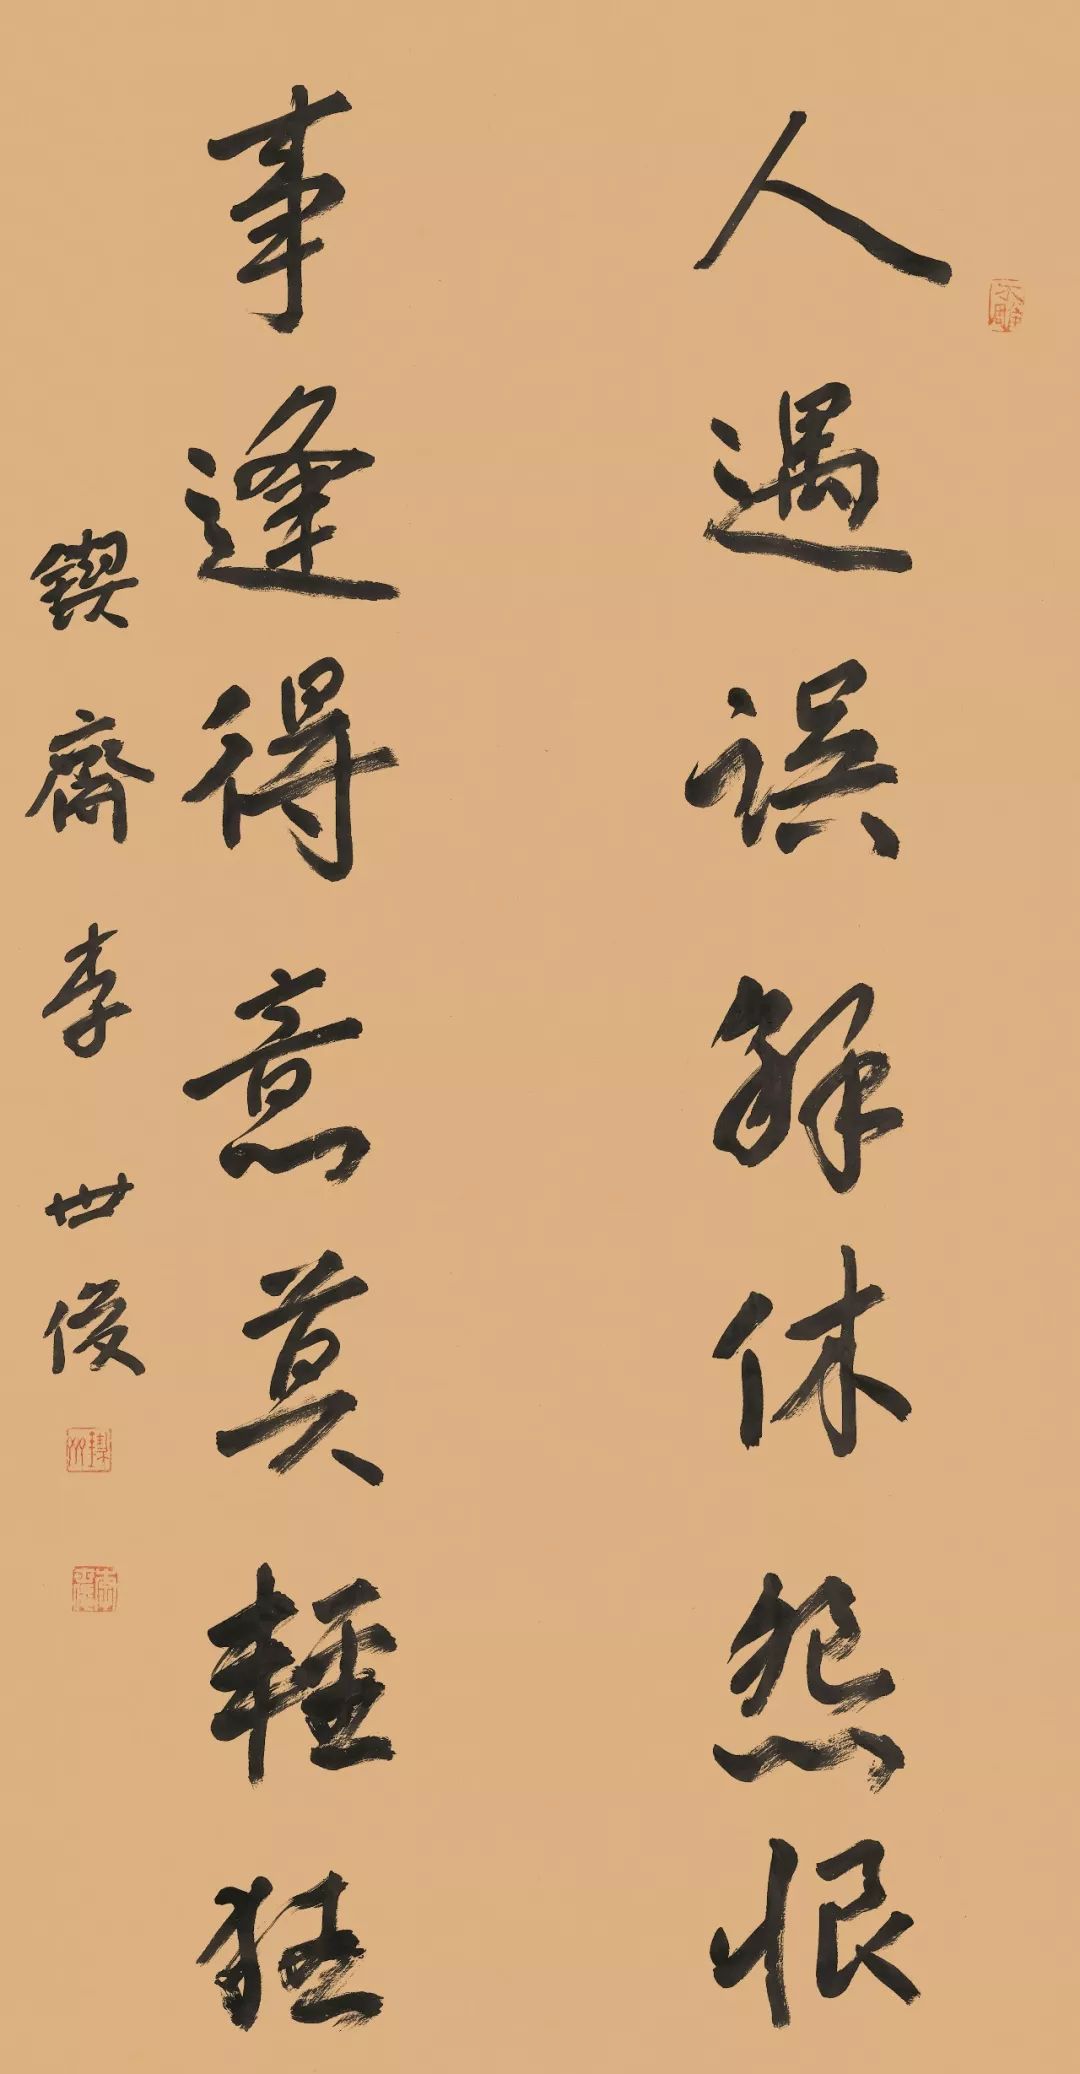 人遇误解休怨恨
事逢得意莫輕狂
鍥齋李世俊